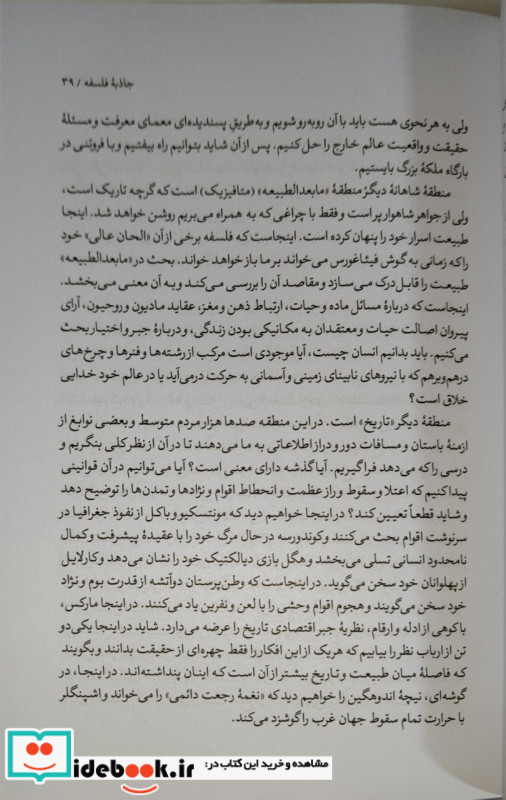 جاذبهٔ فلسفه / ۳۹
ولی به هر نحوی هست باید با آن روبه‌رو شویم و به طریقِ پسندیده‌ای معمای معرفت و مسئلهٔ
حقیقت و واقعیت عالم خارج را حل کنیم. پس از آن شاید بتوانیم راه بیفتیم و با فروتنی در
بارگاه ملکهٔ بزرگ بایستیم.
منطقهٔ شاهانهٔ دیگر منطقهٔ «مابعدالطبیعه» (متافیزیک) است که گرچه تاریک است،
ولی از جواهر شاهوار پر است و فقط با چراغی که به همراه می‌بریم روشن خواهد شد. اینجا
طبیعت اسرار خود را پنهان کرده است. اینجاست که فلسفه برخی از آن «الحان عالی» خود
را که زمانی به گوش فیثاغورس می‌خواند بر ما باز خواهد خواند. بحث در «مابعدالطبیعه»
طبیعت را قابل درک می‌سازد و مقاصد آن را بررسی می‌کند و به آن معنی می‌بخشد.
اینجاست که دربارهٔ مسائل ماده و حیات، ارتباط ذهن و مغز، عقاید مادیون و روحیون، آرای
پیروان اصالت حیات و معتقدان به مکانیکی بودن زندگی، و دربارهٔ جبر و اختیار بحث
می‌کنیم. باید بدانیم انسان چیست، آیا موجودی است مرکب از رشته‌ها و فنرها و چرخ‌های
درهم‌وبرهم که با نیروهای نابینای زمینی و آسمانی به حرکت درمی‌آید یا در عالم خود خدایی
خلاق است؟
منطقهٔ دیگر «تاریخ» است. در این منطقه صدها هزار مردم متوسط و بعضی نوابغ از
ازمنهٔ باستان و مسافات دور و دراز اطلاعاتی به ما می‌دهند تا در آن از نظر کلی بنگریم و
درسی را که می‌دهد فراگیریم. آیا گذشته دارای معنی است؟ آیا می‌توانیم در آن قوانینی
پیدا کنیم که اعتلا و سقوط و راز عظمت و انحطاط اقوام و نژادها و تمدن‌ها را توضیح دهد
و شاید قطعاً تعیین کند؟ در اینجا خواهیم دید که مونتسکیو و باکل از نفوذ جغرافیا در
سرنوشت اقوام بحث می‌کنند و کوندورسه در حال مرگ خود را با عقیدهٔ پیشرفت و کمال
نامحدود انسانی تسلی می‌بخشد و هگل بازی دیالکتیک خود را نشان می‌دهد و کارلایل
از پهلوانان خود سخن می‌گوید. در اینجاست که وطن‌پرستان دوآتشه از قدرت بوم و نژاد
خود سخن می‌گویند و هجوم اقوام وحشی را با لعن و نفرین یاد می‌کنند. در اینجا مارکس،
با کوهی از ادله و ارقام، نظریهٔ جبر اقتصادی تاریخ را عرضه می‌دارد. شاید در اینجا یکی‌دو
تن از ارباب نظر را بیابیم که هریک از این افکار را فقط چهره‌ای از حقیقت بدانند و بگویند
که فاصلهٔ میان طبیعت و تاریخ بیشتر از آن است که اینان پنداشته‌اند. در اینجا، در
گوشه‌ای، نیچهٔ اندوهگین را خواهیم دید که «نغمهٔ رجعت دائمی» را می‌خواند و اشپنگلر
با حرارت تمام سقوط جهان غرب را گوشزد می‌کند.
مشاهده و خرید این کتاب در:
idebook.ir